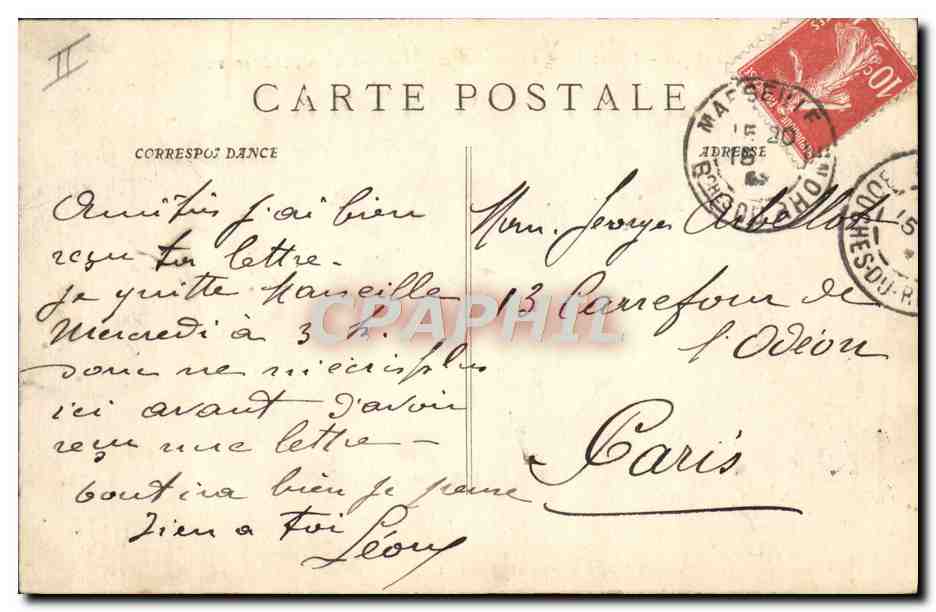 II
CARTE POSTALE
CORRESPONDANCE
ADRESSE
10c
MARSEILLE
15
18
20
BCHES DU RHONE
BOUCHES-DU-R
15
j'ai bien
reçu ta lettre -
je quitte Marseille
Mercredi à 3 h.
donc ne m'écris plus
ici avant d'avoir
reçu une lettre -
tout ira bien je pense
Tien a toi
Léon
Georges
13 Carrefour de
l'Odéon
Paris
CPAPHIL